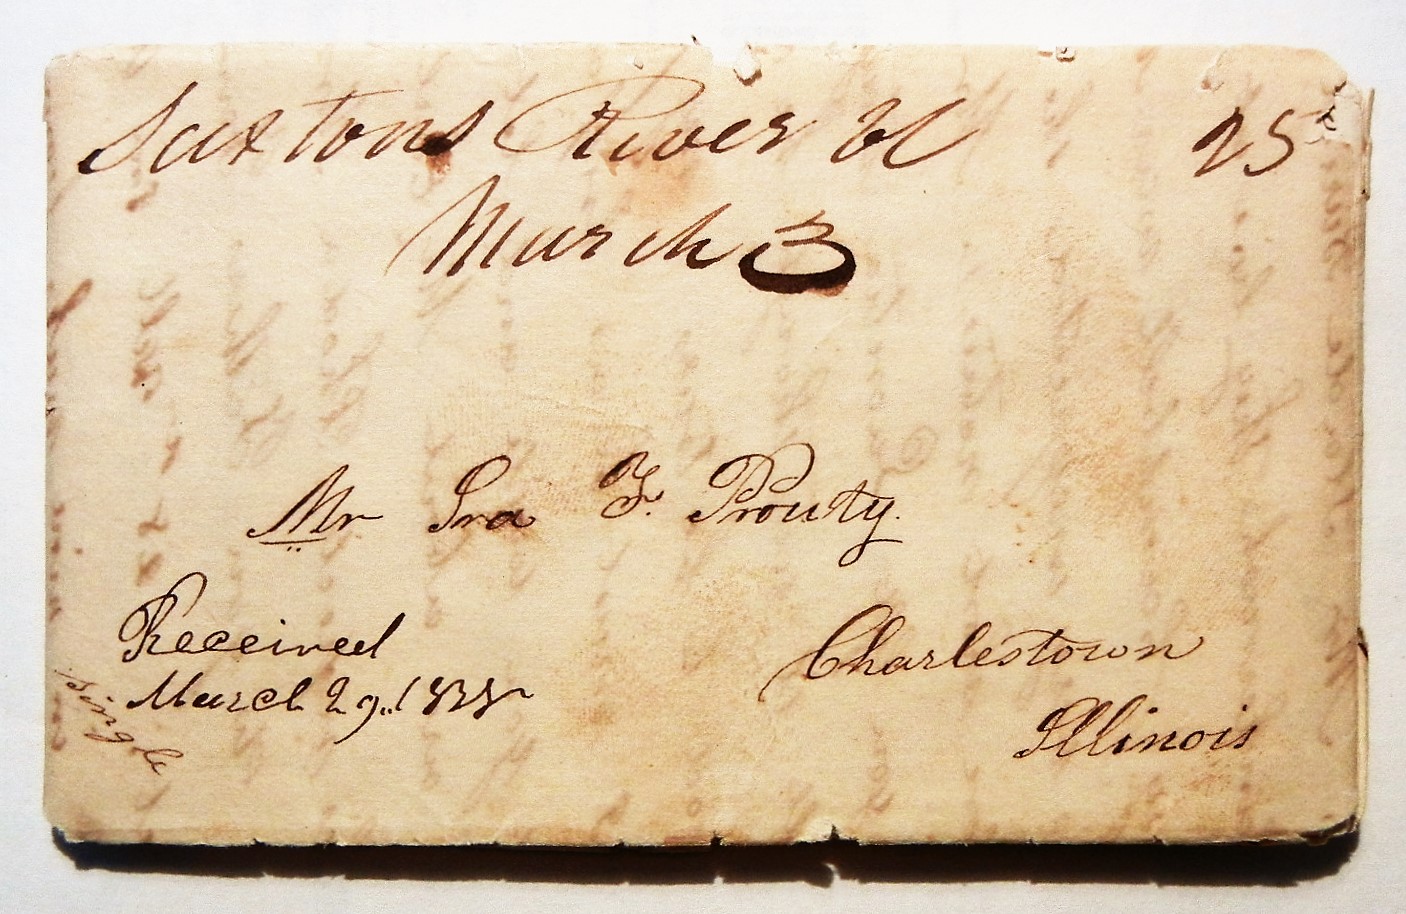 Saxtons River Vt 25
March 3
Mr Ira F. Prouty.
Received
March 29..1838
single
Charlestown
Illinois